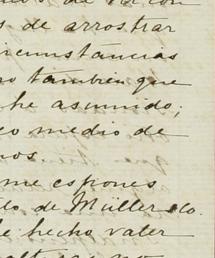 s de arrostrar
circunstancias
no también que
he asumido;
co medio de
nos
me espones
lo de Müller & Co.
he hecho valer